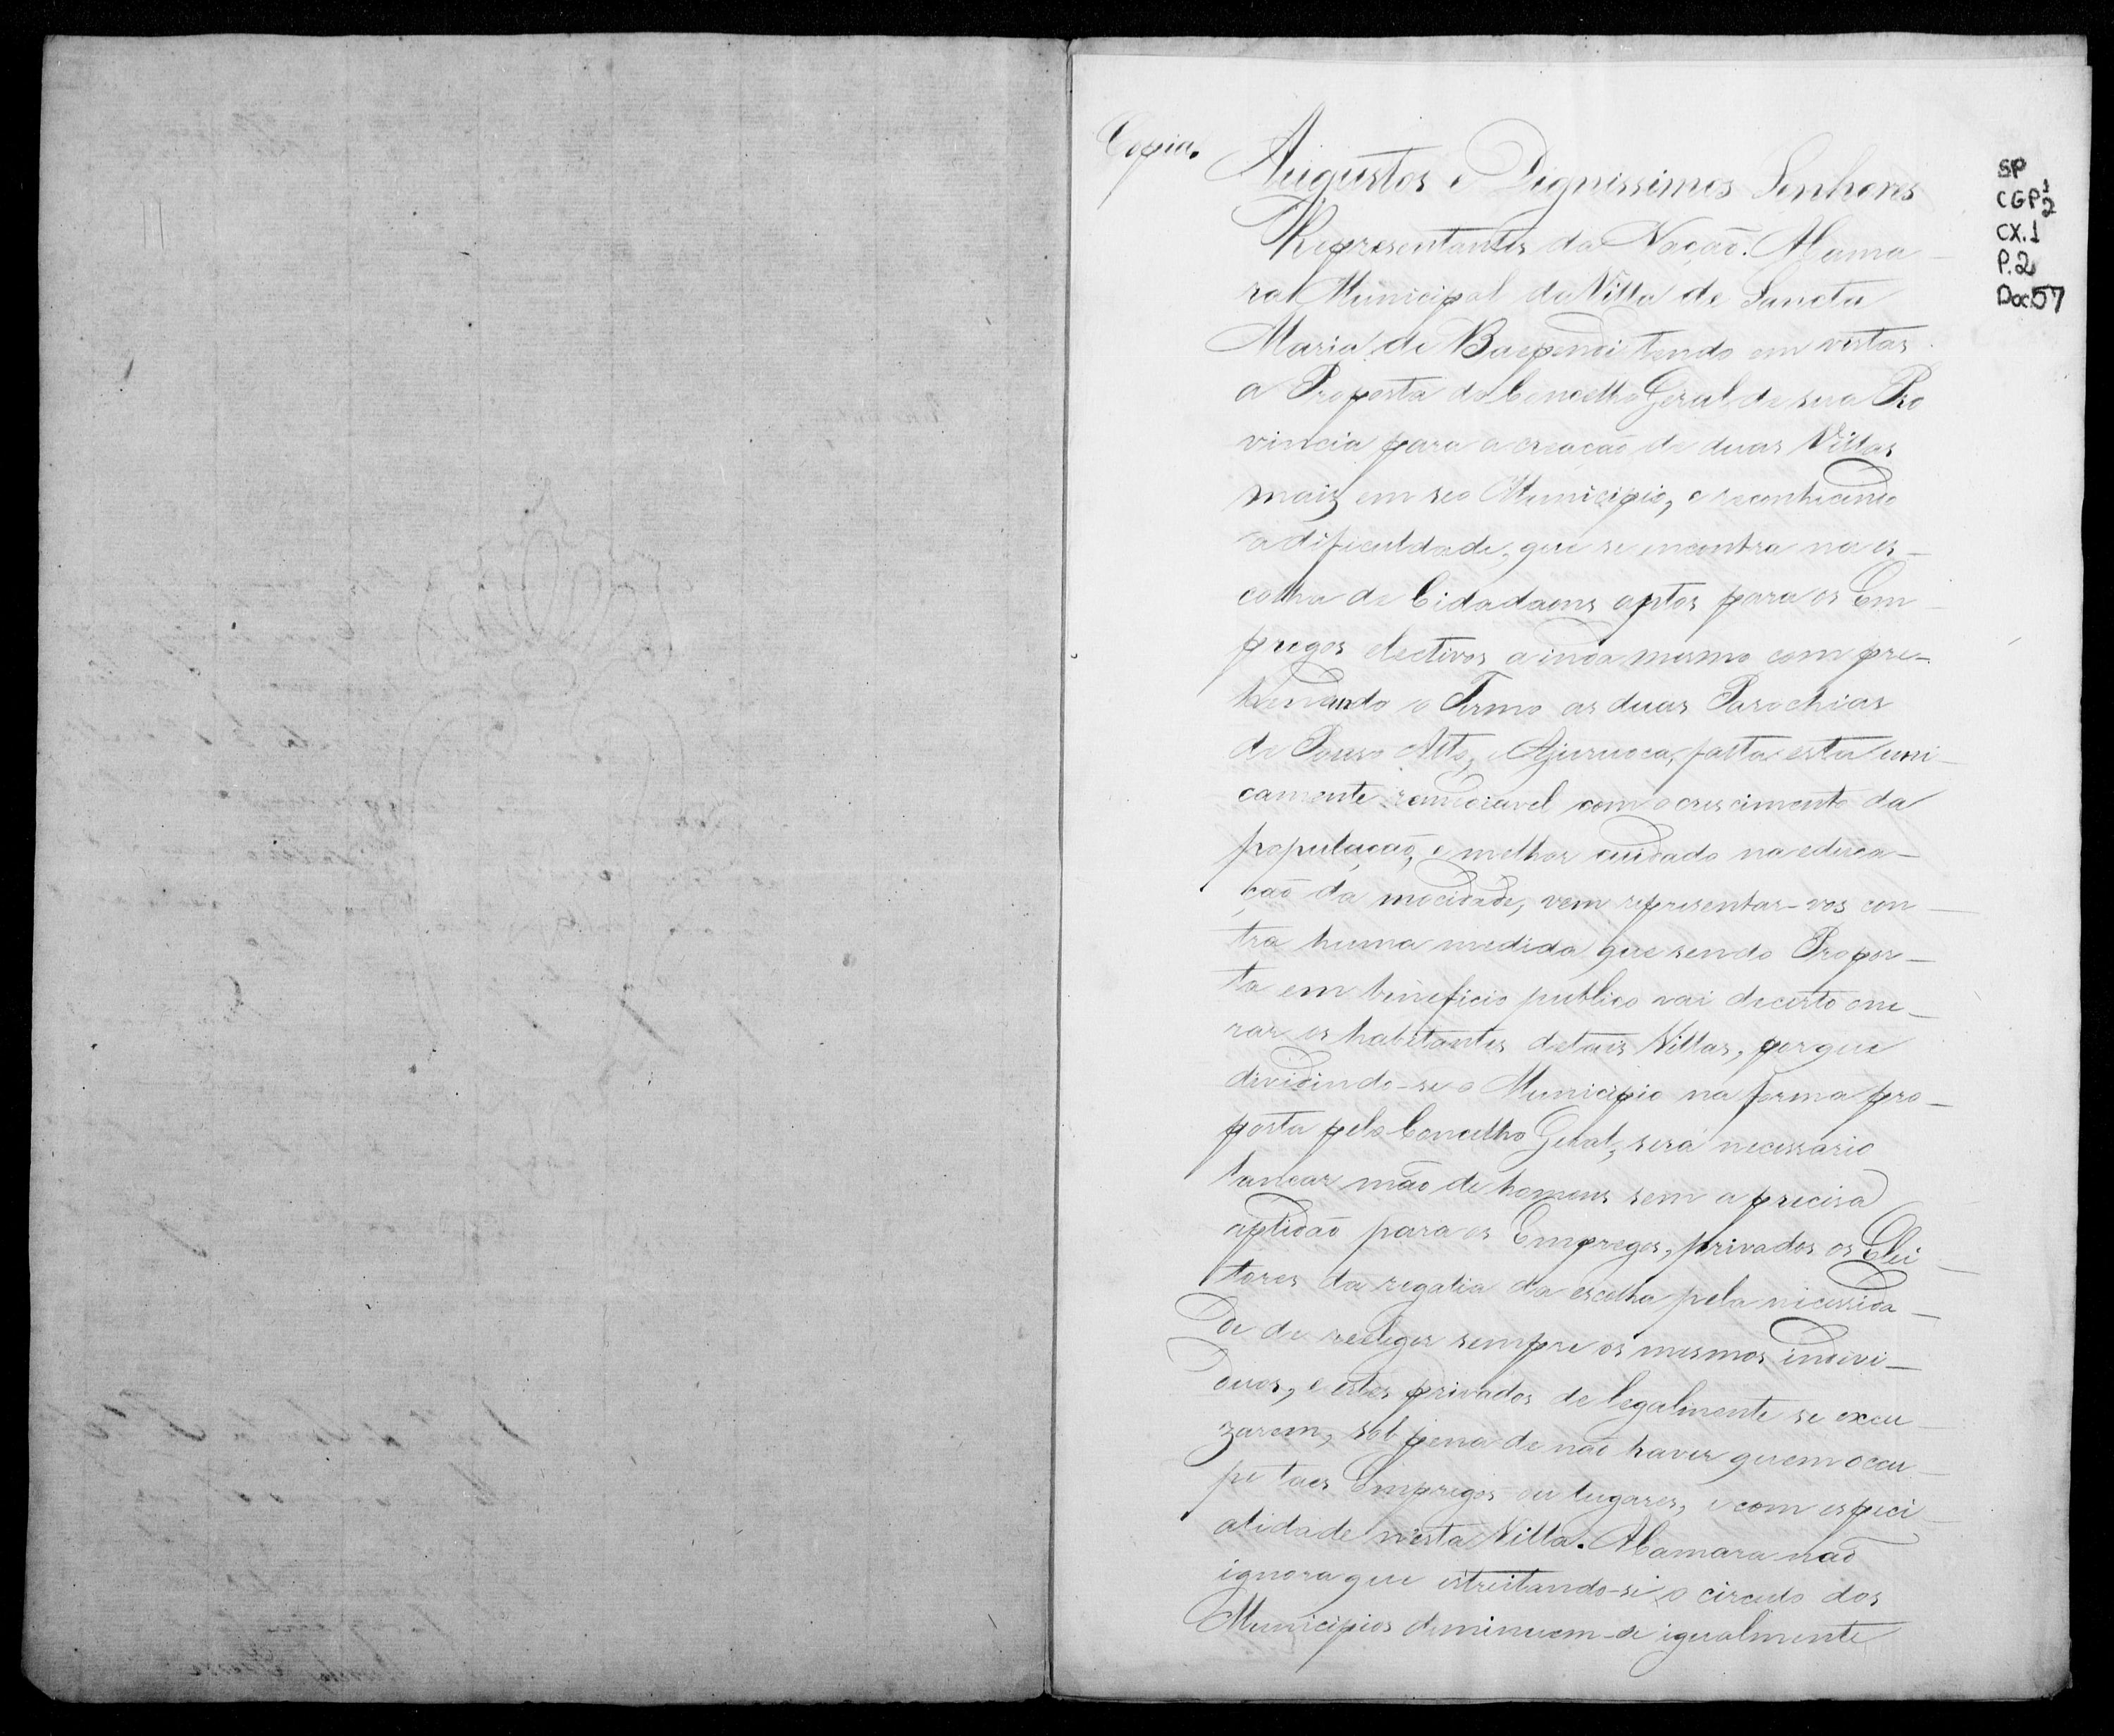 Copia.
Augustos e Dignissimos Senhores
Representantes da Nação. A Cama-
ra Municipal da Villa de Sancta
Maria de Baependi tendo em vistas
a Proposta do Concelho Geral de sua Pro
vincia para a creação de duas Villas
mais em seo Municipio, e reconhecendo
a dificuldade, que se encontra na es-
colha de Cidadaens aptos para os Em-
pregos electivos ainda mesmo compre-
hendendo o Termo as duas Parochias
de Pouso Alto, e Ajuruoca, falta esta uni-
camente remediavel com o crescimento da
população, e melhor cuidado na educa-
ção da mocidade, vem representar-vos con-
tra huma medida que sendo Propos-
ta em beneficio publico vai decerto one-
rar os habitantes de tais Villas, porque
dividindo-se o Municipio na forma pro-
posta pelo Concelho Geral, será necessario
lançar mão de homens sem a precisa
aptidão para os Empregos, privados os Elei-
tores da regalia da escolha pela necessida-
de de reeleger sempre os mesmos indivi-
duos, e estes privados de legalmente se excu-
zarem, sob pena de não haver quem ocu-
pe taes Empregos ou lugares, e com especi-
alidade nesta Villa. A Camara não
ignora que estreitando-se o circulo dos
Municipios deminuem-se igualmente
SP
CGP 1/2
CX.1
P.2
Doc.57